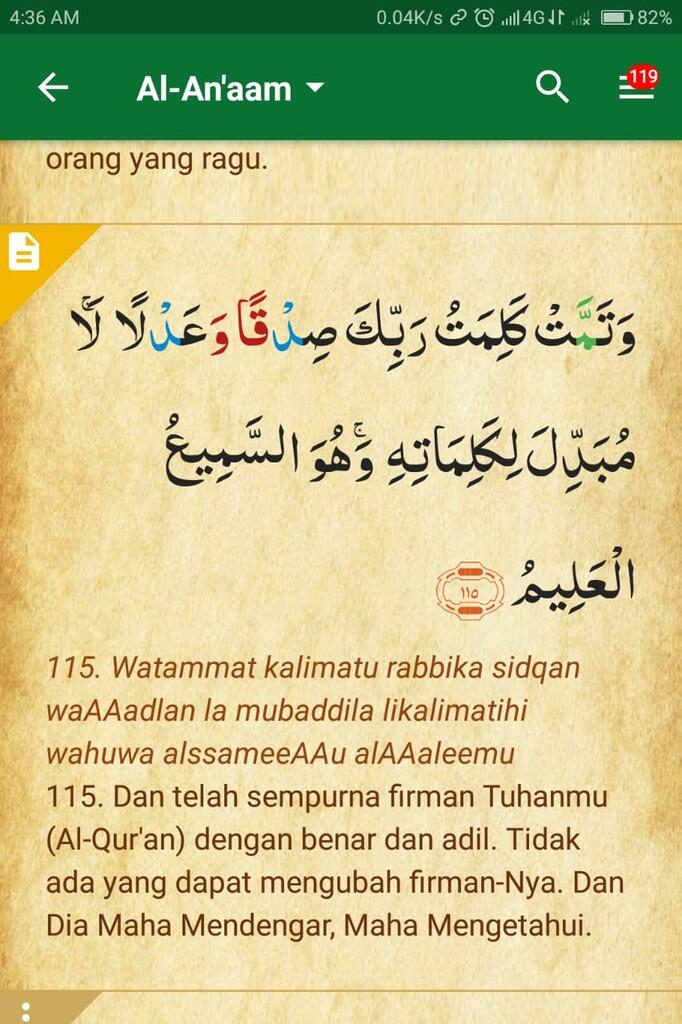 4:36 AM 0.04K/s 4G 82%
Al-An'aam
119
orang yang ragu.
وَتَمَّتْ كَلِمَتُ رَبِّكَ صِدْقًا وَعَدْلًا لَّا
مُبَدِّلَ لِكَلِمَاتِهِ وَهُوَ السَّمِيعُ
الْعَلِيمُ ١١٥
115. Watammat kalimatu rabbika sidqan
waAAadlan la mubaddila likalimatihi
wahuwa alssameeAAu alAAaleemu
115. Dan telah sempurna firman Tuhanmu
(Al-Qur'an) dengan benar dan adil. Tidak
ada yang dapat mengubah firman-Nya. Dan
Dia Maha Mendengar, Maha Mengetahui.